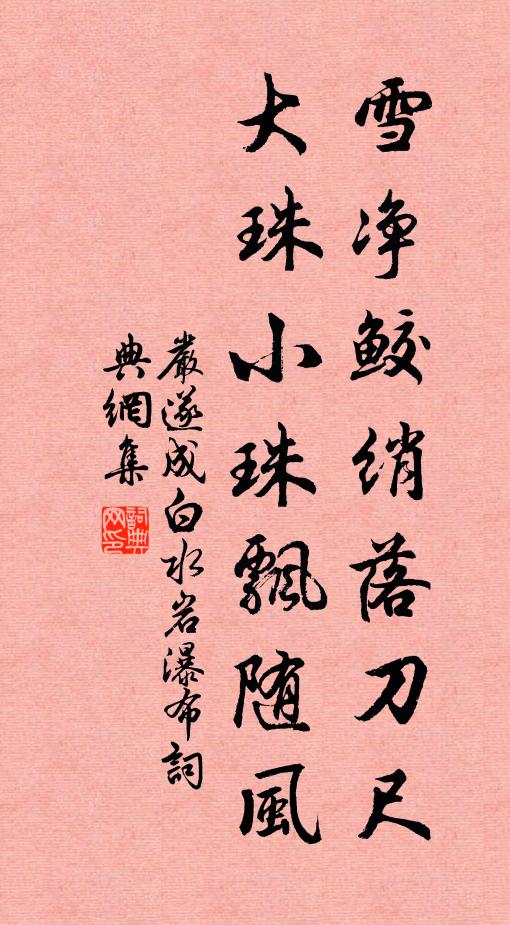 雪净鲛绡落刀尺
大珠小珠飘随風
嚴遂成白水岩瀑布詞
典網集
詞典网印